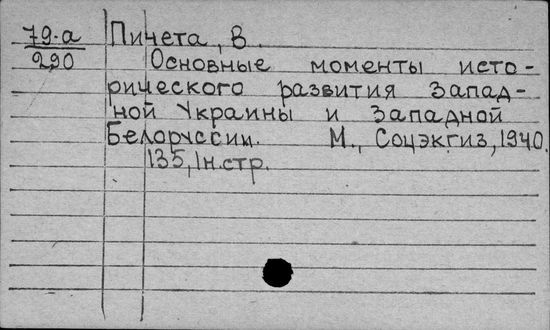 79-а Пичета, В.
290 Основные моменты исто-
рического развития Запад-
ной Украины и Западной
Белоруссии. М., Соцэкгиз, 1940.
135, 1н.стр.